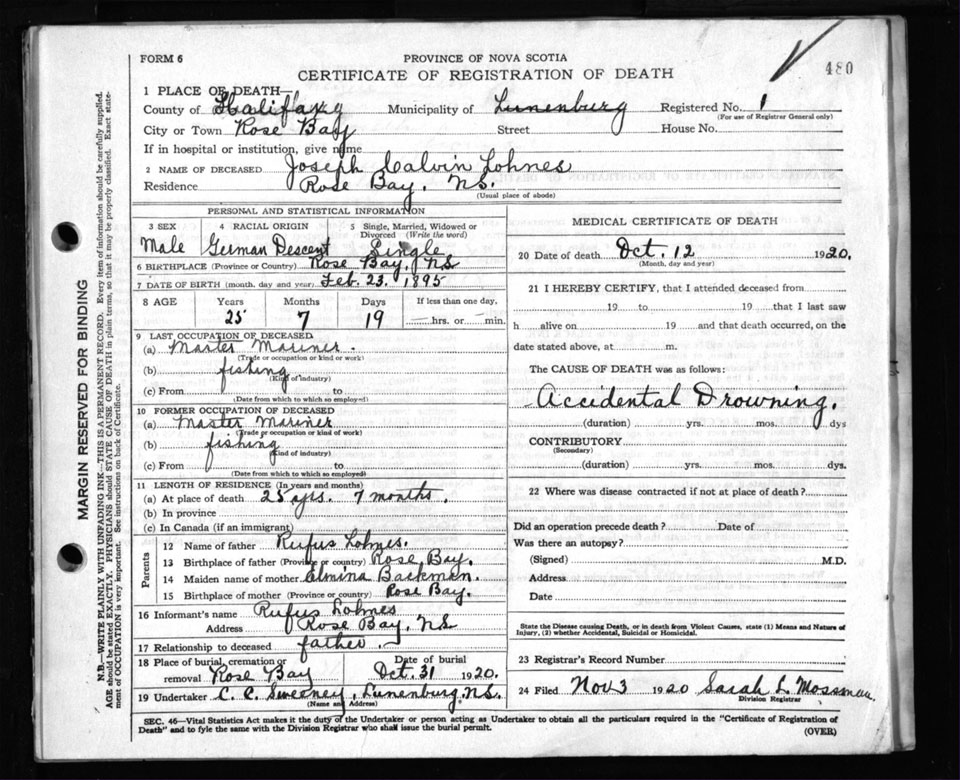 480
FORM 6
PROVINCE OF NOVA SCOTIA
CERTIFICATE OF REGISTRATION OF DEATH
1 PLACE OF DEATH—
County of Halifax Municipality of Lunenburg Registered No. 1
(For use of Registrar General only)
City or Town Rose Bay Street House No.
If in hospital or institution, give name
2 NAME OF DECEASED Joseph Calvin Lohnes
Residence Rose Bay, NS.
(Usual place of abode)
PERSONAL AND STATISTICAL INFORMATION
3 SEX 4 RACIAL ORIGIN 5 Single, Married, Widowed or Divorced (Write the word)
Male German Descent Single
6 BIRTHPLACE (Province or Country) Rose Bay, NS
7 DATE OF BIRTH (month, day and year) Feb. 23. 1895
8 AGE Years Months Days If less than one day,
25 7 19 hrs. or min.
9 LAST OCCUPATION OF DECEASED
(a) Master Mariner.
(Trade or occupation or kind of work)
(b) fishing
(Kind of industry)
(c) From to
(Date from which to which so employed)
10 FORMER OCCUPATION OF DECEASED
(a) Master Mariner
(Trade or occupation or kind of work)
(b) fishing
(Kind of industry)
(c) From to
(Date from which to which so employed)
11 LENGTH OF RESIDENCE (In years and months)
(a) At place of death 25 yrs. 7 months.
(b) In province
(c) In Canada (if an immigrant)
Parents
12 Name of father Rufus Lohnes.
13 Birthplace of father (Province or country) Rose Bay.
14 Maiden name of mother Elmina Backman.
15 Birthplace of mother (Province or country) Rose Bay.
16 Informant's name Rufus Lohnes
Address Rose Bay, NS
17 Relationship to deceased father.
18 Place of burial, cremation or removal Rose Bay Date of burial Oct. 31 1920.
19 Undertaker C. C. Sweeney, Lunenburg, N.S.
(Name and Address)
MEDICAL CERTIFICATE OF DEATH
20 Date of death Oct. 12 1920.
(Month, day and year)
21 I HEREBY CERTIFY, that I attended deceased from
19 to 19 that I last saw
h alive on 19 and that death occurred, on the
date stated above, at m.
The CAUSE OF DEATH was as follows:
Accidental Drowning.
(duration) yrs. mos. dys
CONTRIBUTORY
(Secondary)
(duration) yrs. mos. dys.
22 Where was disease contracted if not at place of death?
Did an operation precede death? Date of
Was there an autopsy?
(Signed) M.D.
Address
Date
State the Disease causing Death, or in death from Violent Causes, state (1) Means and Nature of
Injury, (2) whether Accidental, Suicidal or Homicidal.
23 Registrar's Record Number
24 Filed Nov 3 1920 Sarah L. Mossman
Division Registrar
SEC. 46—Vital Statistics Act makes it the duty of the Undertaker or person acting as Undertaker to obtain all the particulars required in the "Certificate of Registration of
Death" and to fyle the same with the Division Registrar who shall issue the burial permit.
(OVER)
MARGIN RESERVED FOR BINDING
N.B.—WRITE PLAINLY WITH UNFADING INK—THIS IS A PERMANENT RECORD. Every item of information should be carefully supplied.
AGE should be stated EXACTLY. PHYSICIANS should STATE CAUSE OF DEATH in plain terms, so that it may be properly classified. Exact state-
ment of OCCUPATION is very important. See instructions on back of Certificate.